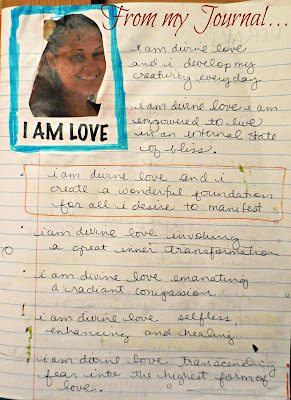 From my Journal...
I AM LOVE
i am divine love
and i develop my
creativity everyday
i am divine love i am
empowered to live
in an internal state
of bliss.
i am divine love and i
create a wonderful foundation
for all i desire to manifest
i am divine love invoking
a great inner transformation
i am divine love emanating
a radiant compassion
i am divine love selfless
enhancing and healing
i am divine love transcending
fear into the highest form of
love.